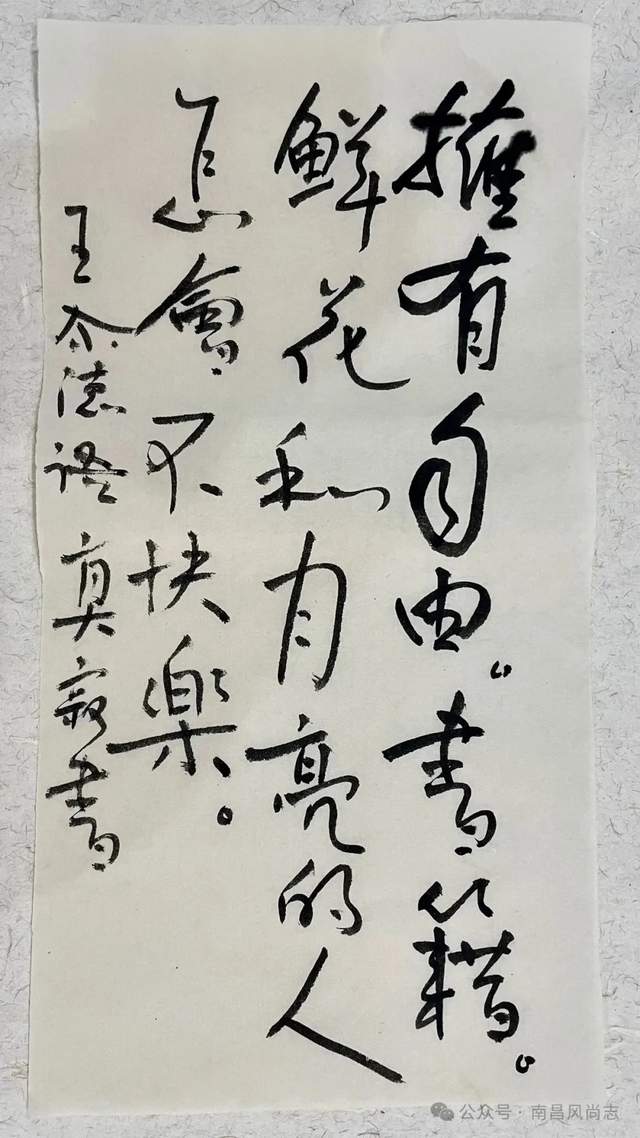 擁有自由。書籍。
鮮花和月亮的人
怎會不快樂。
王尔德語 真寂書
公众号·南昌风尚志